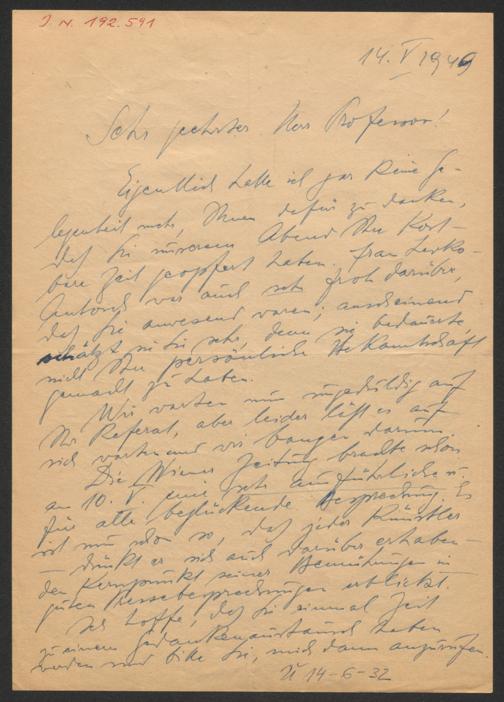 J. N. 192.591
14. V 1949
Sehr geehrter Herr Professor!
Eigentlich hatte ich gar keine Ge-
legenheit mehr, Ihnen dafür zu danken,
daß Sie unserem Abend Ihre kost-
bare Zeit geopfert haben. Frau
war auch sehr froh darüber,
daß Sie anwesend waren; anscheinend
schätzt sie Sie sehr, denn sie bedauerte
nicht Ihre persönliche Bekanntschaft
gemacht zu haben.
Wir warten nun ungeduldig auf
Ihr Referat, aber leider läßt es auf
sich warten und wir bangen darum.
Die Wiener Zeitung brachte schon
am 10. V. eine sehr ausführliche u.
für alle beglückende Besprechung. Es
ist nun schon so, daß jeder Künstler
– dünkt er sich auch darüber erhaben –
den Kernpunkt seiner Bemühungen in
guten Pressebesprechungen erblickt.
Ich hoffe, daß Sie einmal Zeit
zu einem Gedankenaustausch haben
werden und bitte Sie, mich dann anzurufen.
U 14-6-32